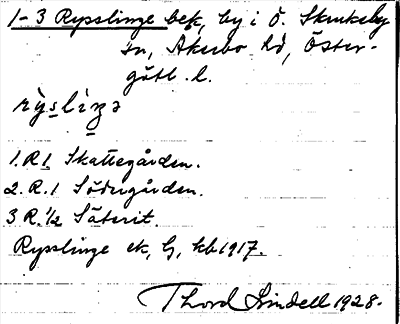 1-3 Rysslinge bef, by i Ö. Skrukeby
sn, Åkerbo hd, Öster-
götl. l.
rỳslìŋə
1. R 1 Skattegården.
2. R. 1 Södergården.
3 R. 1/2 Säterit.
Rysslinge ek, G, kb 1917.
Thord Lindell 1928.